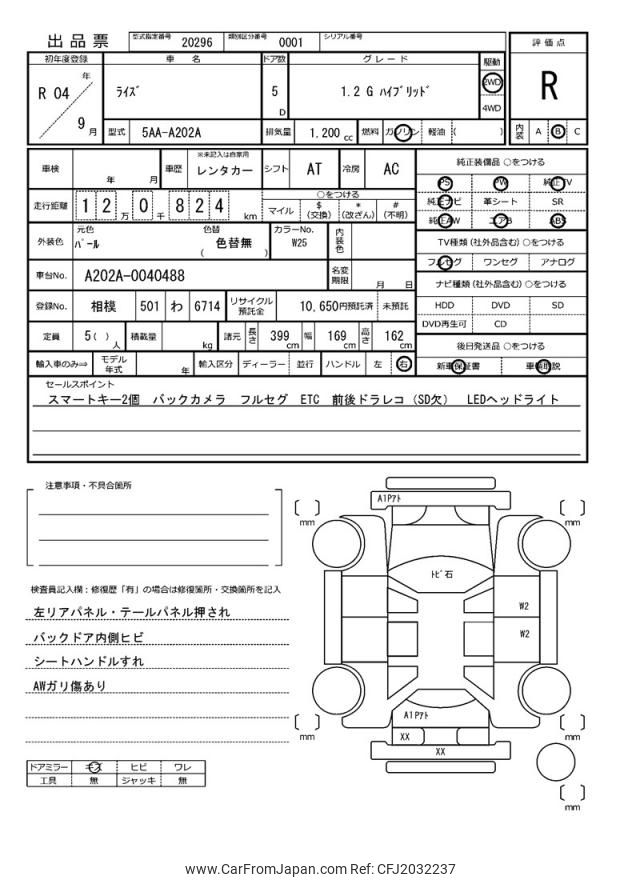 出品票 型式指定番号 20296 類別区分番号 0001 シリアル番号
評価点
R
内装 A B C
初年度登録 車名 ドア数 グレード 駆動
R 04 年 9 月
ライズ 5 D 1.2 G ハイブリッド 2WD
4WD
型式 5AA-A202A 排気量 1.200 cc 燃料 ガソリン 軽油 ( )
車検 年 月 車歴 ※未記入は自家用 レンタカー シフト AT 冷房 AC
走行距離 1 2 万 0 千 8 2 4 km
○をつける
マイル $(交換) *(改ざん) #(不明)
外装色 元色 パール 色替 色替無 ( ) カラーNo. W25 内装色
車台No. A202A-0040488 名変期限 月 日
登録No. 相模 501 わ 6714 リサイクル預託金 10,650円預託済 未預託
定員 5( ) 人 積載量 kg 諸元 長さ 399 cm 幅 169 cm 高さ 162 cm
輸入車のみ⇒ モデル年式 年 輸入区分 ディーラー 並行 ハンドル 左 右
純正装備品 ○をつける
PS PW 純正TV
純正ナビ 革シート SR
純正AW エアB ABS
TV種類 (社外品含む) ○をつける
フルセグ ワンセグ アナログ
ナビ種類 (社外品含む) ○をつける
HDD DVD SD
DVD再生可 CD
後日発送品 ○をつける
新車保証書 車輌取説
セールスポイント
スマートキー2個 バックカメラ フルセグ ETC 前後ドラレコ (SD欠) LEDヘッドライト
注意事項・不具合箇所
検査員記入欄：修復歴「有」の場合は修復箇所・交換箇所を記入
左リアパネル・テールパネル押され
バックドア内側ヒビ
シートハンドルすれ
AWガリ傷あり
ドアミラー キズ ヒビ ワレ
工具 無 ジャッキ 無
A1Pアト
[ ] mm
[ ] mm
トビ石
W2
W2
A1Pアト
XX
XX
[ ] mm
[ ] mm
[ ] mm
www.CarFromJapan.com Ref: CFJ2032237